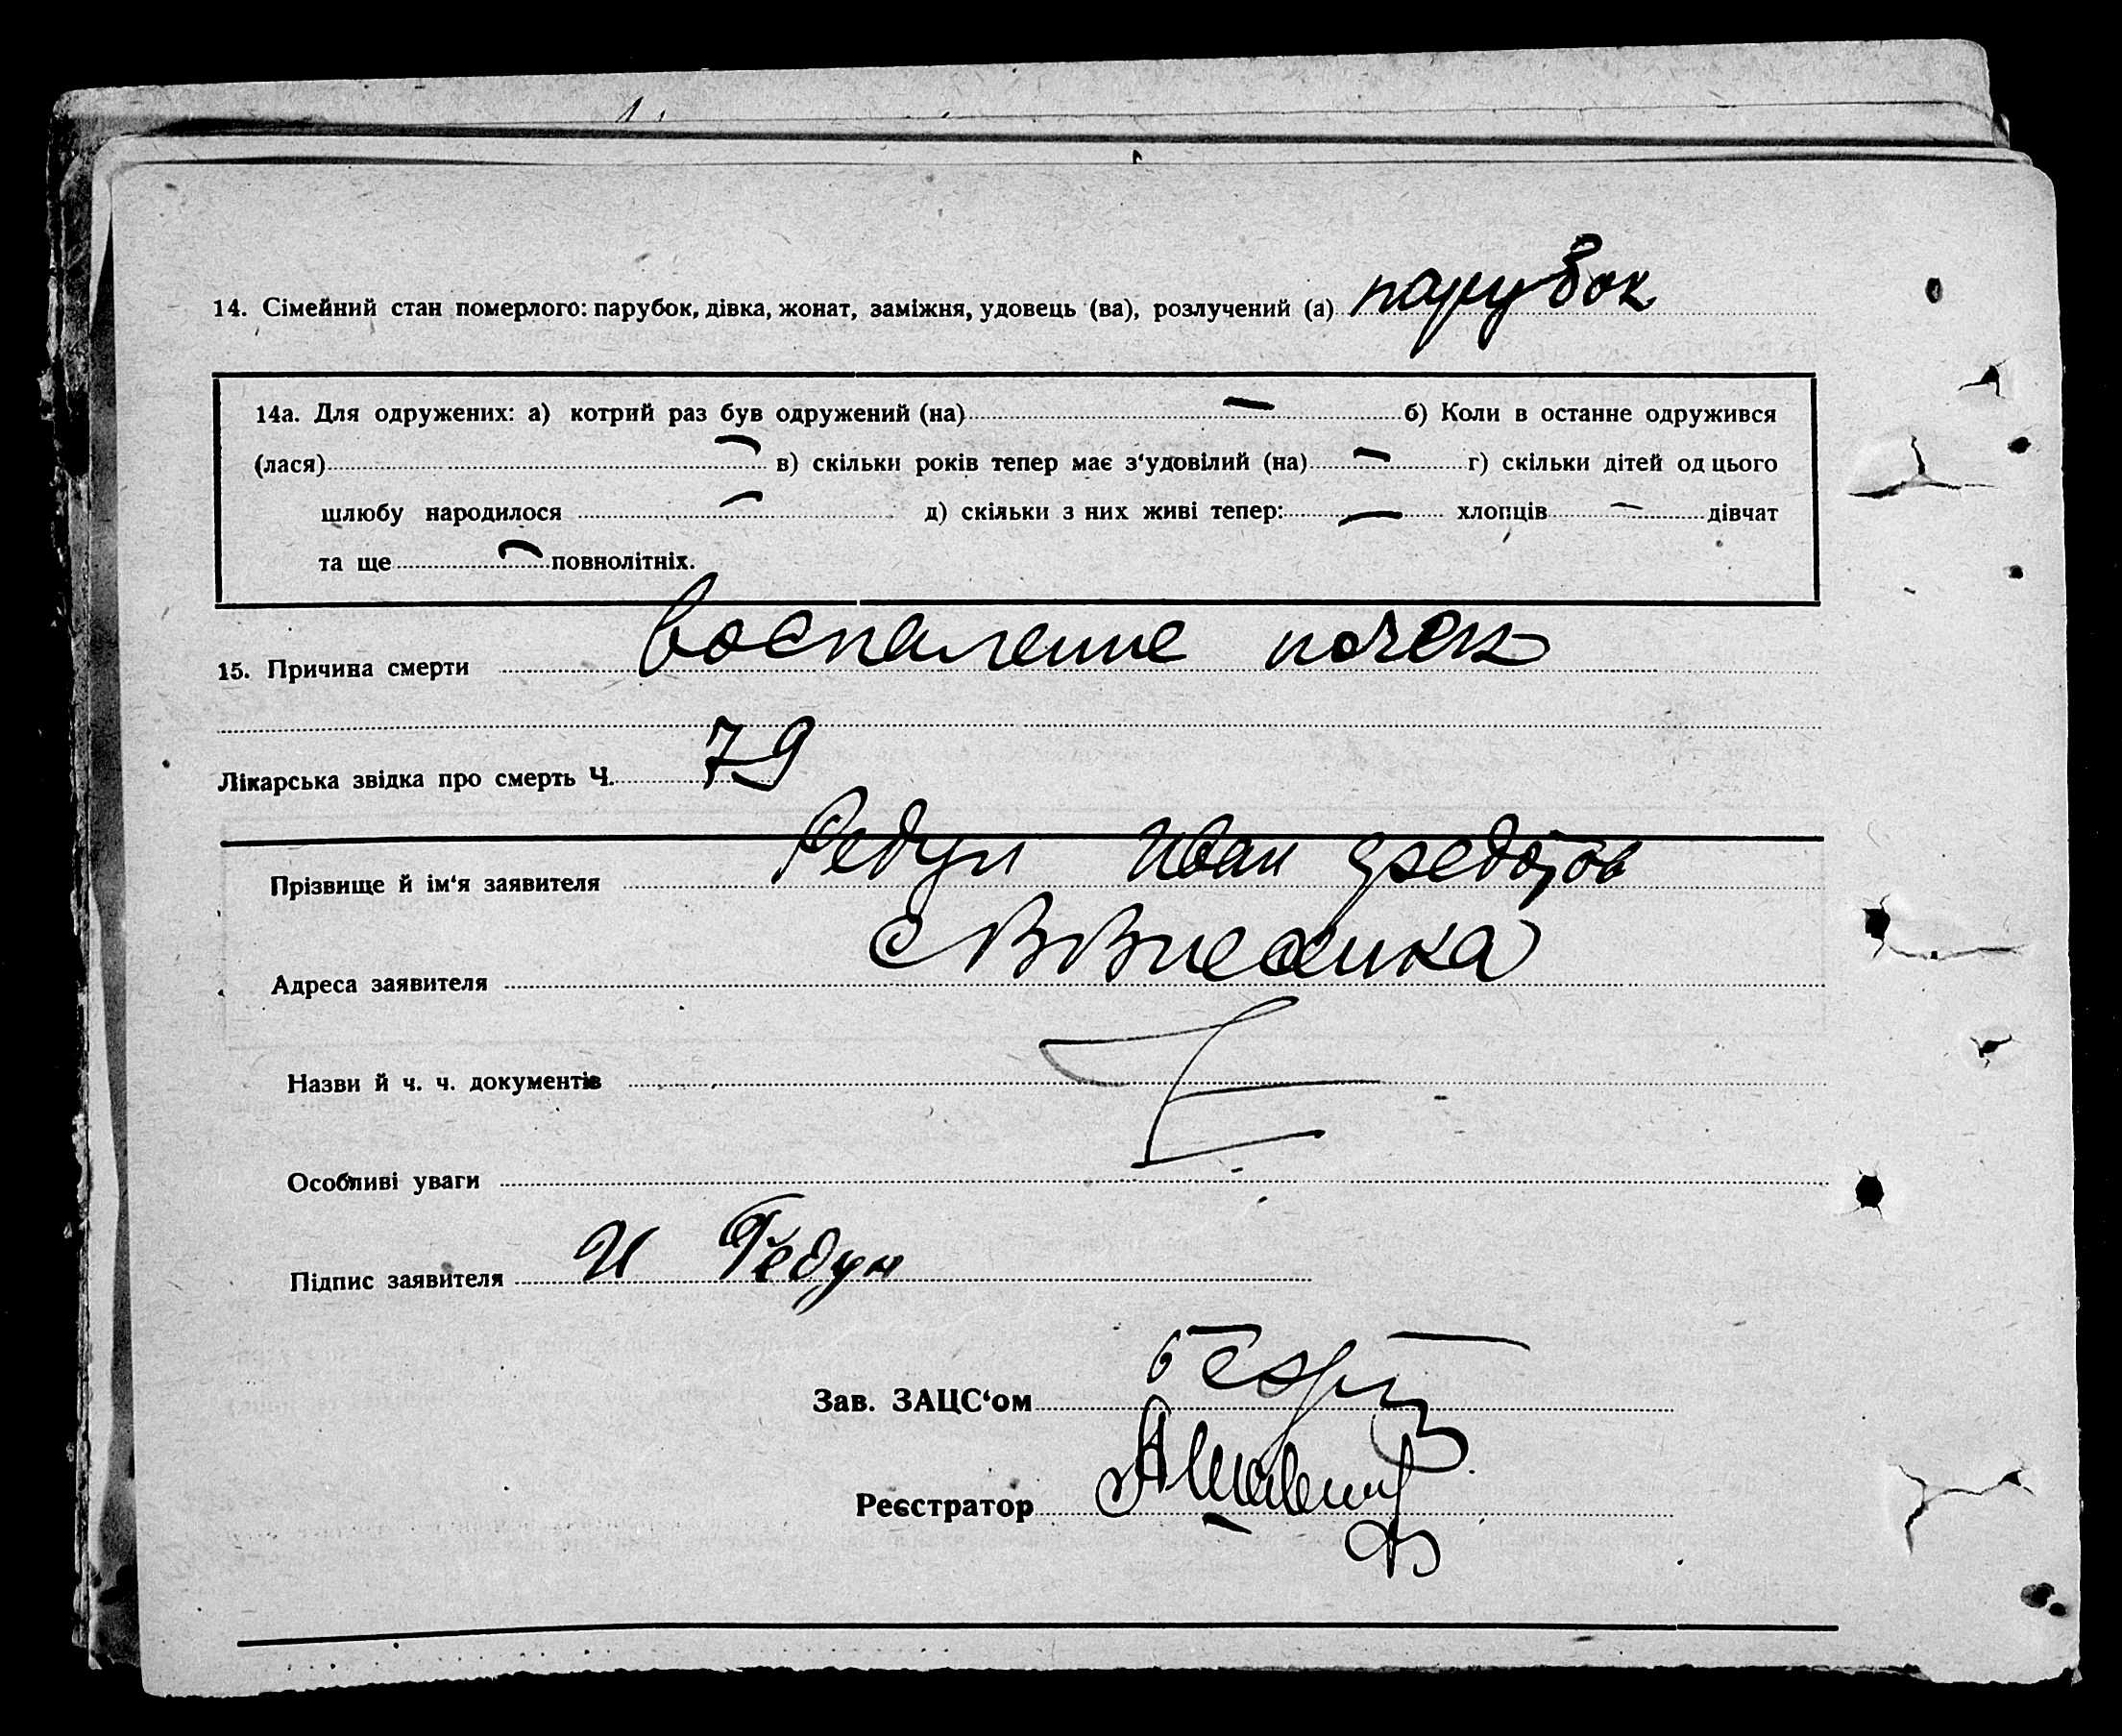 14. Сімейний стан померлого: парубок, дівка, жонат, заміжня, удовець (ва), розлучений (а) парубок
14а. Для одружених: а) котрий раз був одружений (на) — б) Коли в останне одружився
(лася) — в) скільки років тепер має з‘удовілий (на) — г) скільки дітей од цього
шлюбу народилося — д) скільки з них живі тепер: — хлопців — дівчат
та ще — повнолітніх.
15. Причина смерти воспаление почек
Лікарська звідка про смерть Ч. 79
Прізвище й ім‘я заявителя Федун Иван Федотов
Адреса заявителя
Назви й ч. ч. документів
Особливі уваги
Підпис заявителя И Федун
Зав. ЗАЦС‘ом
Реєстратор